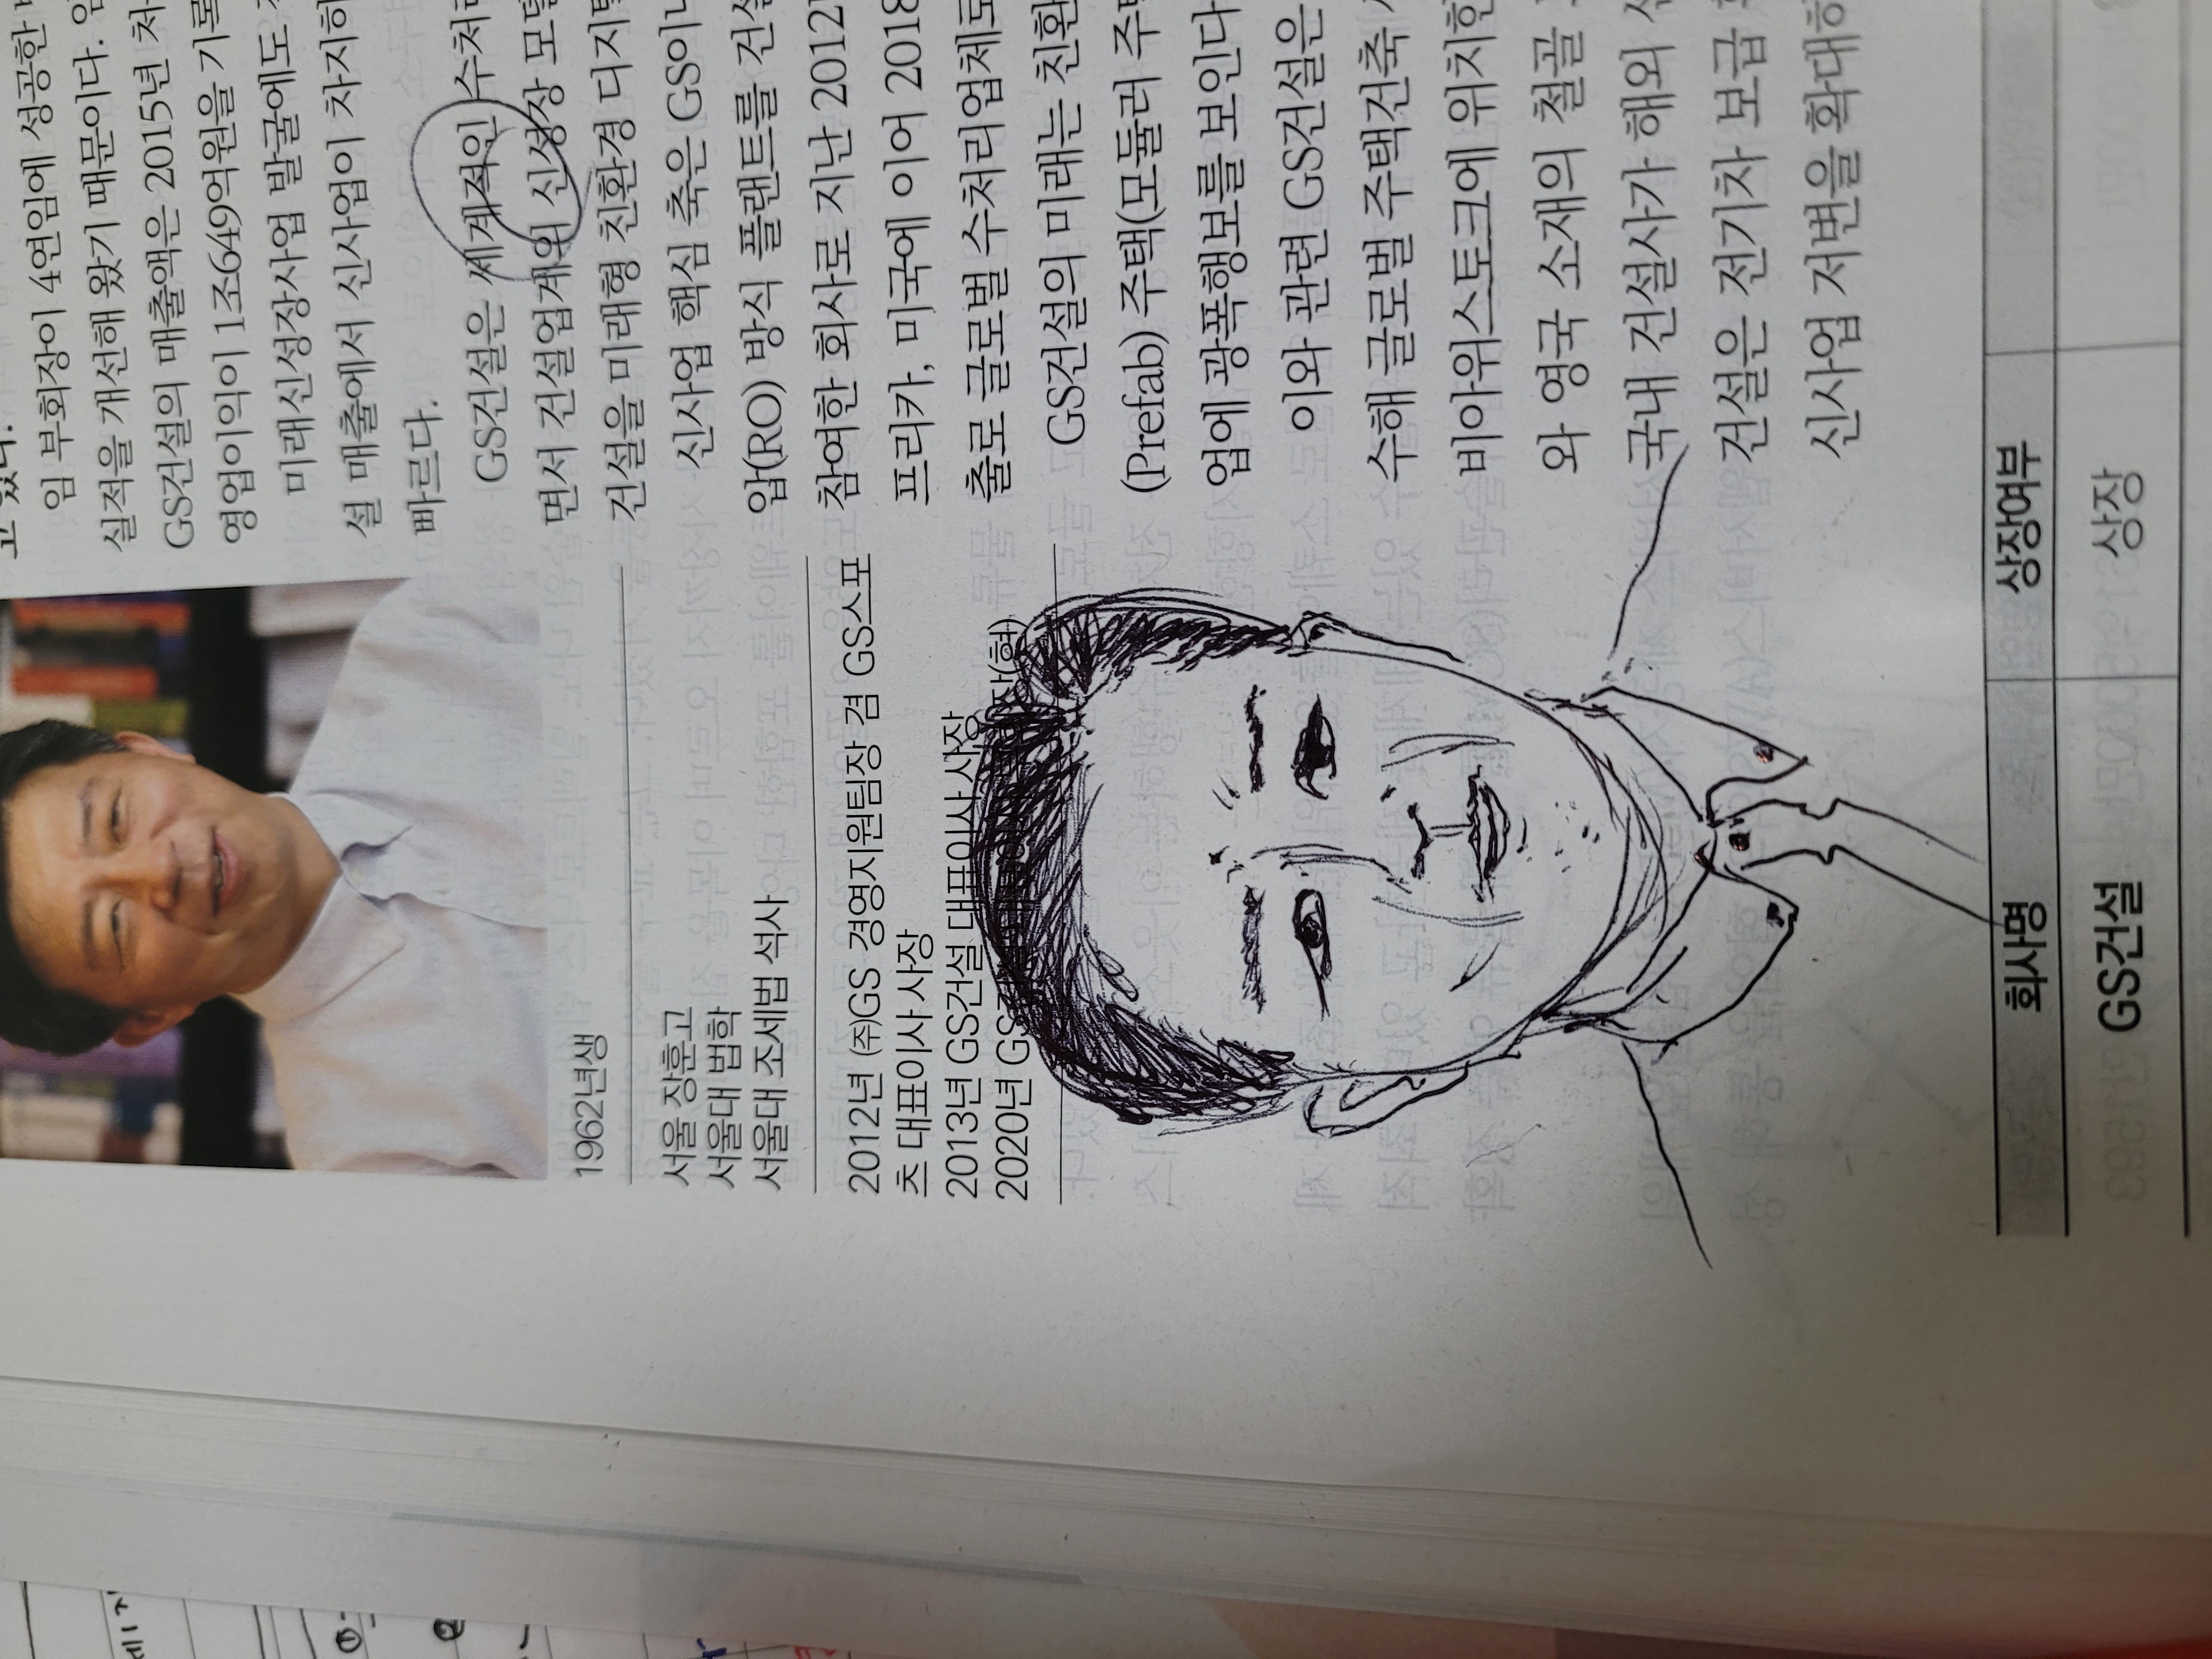 고 있다.
임 부회장이 4연임에 성공한
실적을 개선해 왔기 때문이다.
GS건설의 매출액은 2015년 처
영업이익이 1조649억원을 기록
미래신성장사업 발굴에도
설 매출에서 신사업이 차지하
빠르다.
GS건설은 세계적인 수처리
면서 건설업계의 신성장 모델
건설을 미래형 친환경 디지털
신사업 핵심 축은 GS이니
압(RO) 방식 플랜트를 건설
참여한 회사로 지난 2012
프리카, 미국에 이어 2018
출로 글로벌 수처리업체로
GS건설의 미래는 친환
(Prefab) 주택(모듈러 주택
업에 광폭행보를 보인다
이와 관련 GS건설은
수해 글로벌 주택건축
비아위스토크에 위치한
와 영국 소재의 철골
국내 건설사가 해외
건설은 전기차 보급
신사업 저변을 확대하
1962년생
서울 장훈고
서울대 법학
서울대 조세법 석사
2012년 (주)GS 경영지원팀장 겸 GS스포
츠 대표이사 사장
2013년 GS건설 대표이사 사장
2020년 GS (현)
회사명 상장여부
GS건설 상장